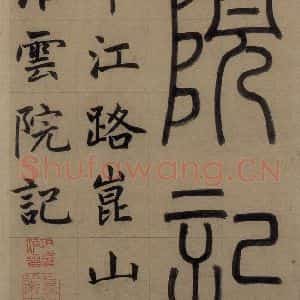 院記
江路崑山
雲院記
Shufawang.CN